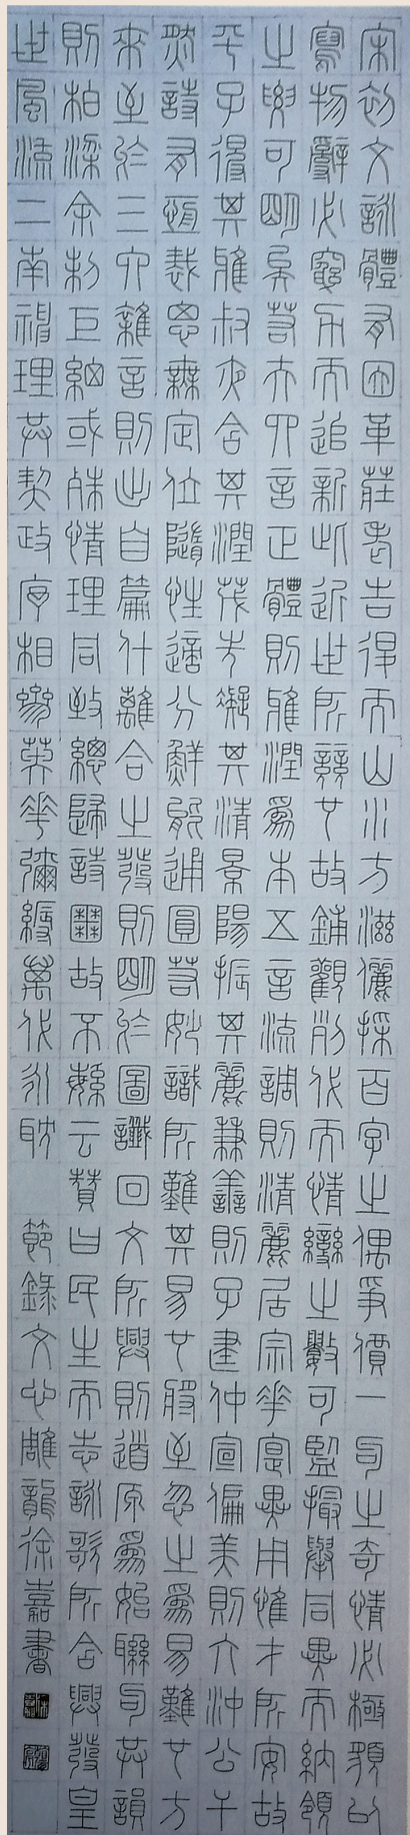 宋初文詠體有因革莊老告退而山水方滋儷採百字之偶爭價一句之奇情必極貌以
寫物辭必窮力而追新此近世所競也故鋪觀列代而情變之數可監撮舉同異而納領
之要可明矣若夫四言正體則雅潤為本五言流調則清麗居宗華實異用惟才所安故
平子得其雅叔夜含其潤茂先凝其清景陽振其麗兼善則子建仲宣偏美則太沖公干
然詩有恆裁思無定位隨性適分鮮能通圓若妙識所難其易也將至忽之為易難也方
來至於三六雜言則出自篇什離合之發則明於圖讖回文所興則道原為始聯句共韻
則柏梁余制巨細或殊情理同致總歸詩囿故不繁云贊曰民生而志詠歌所含興發皇
世風流二南神理共契政序相參英華彌縟萬代永耽 節錄文心雕龍徐嘉書